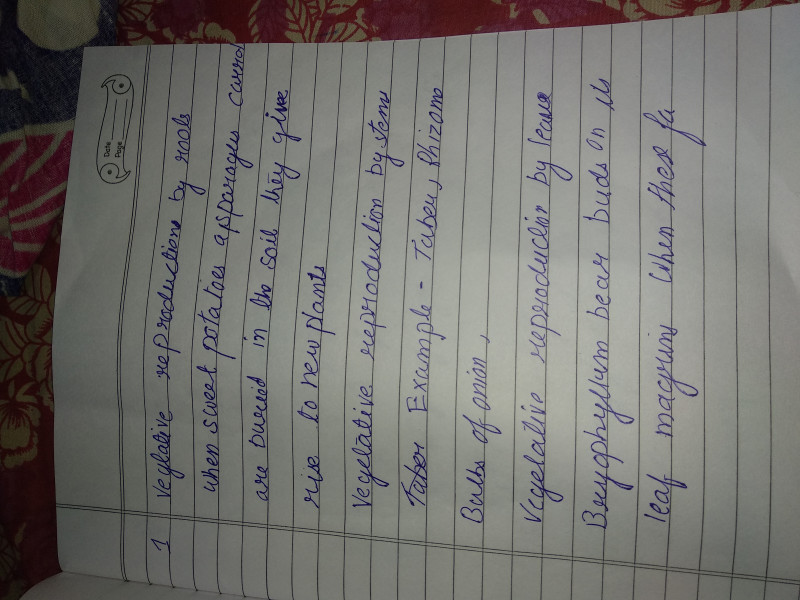 Date
Page
1 Veglative reproductions by roots
when sweet potatoes asparagus carrot
are buried in the soil they give
rise to new plants
Vegetative reproduction by stems
Tuber Example - Tuber, Rhizome
Bulbs of onion,
Vegelative reproduction by leave
Bryophyllum bear buds on its
leaf magrins when these fa